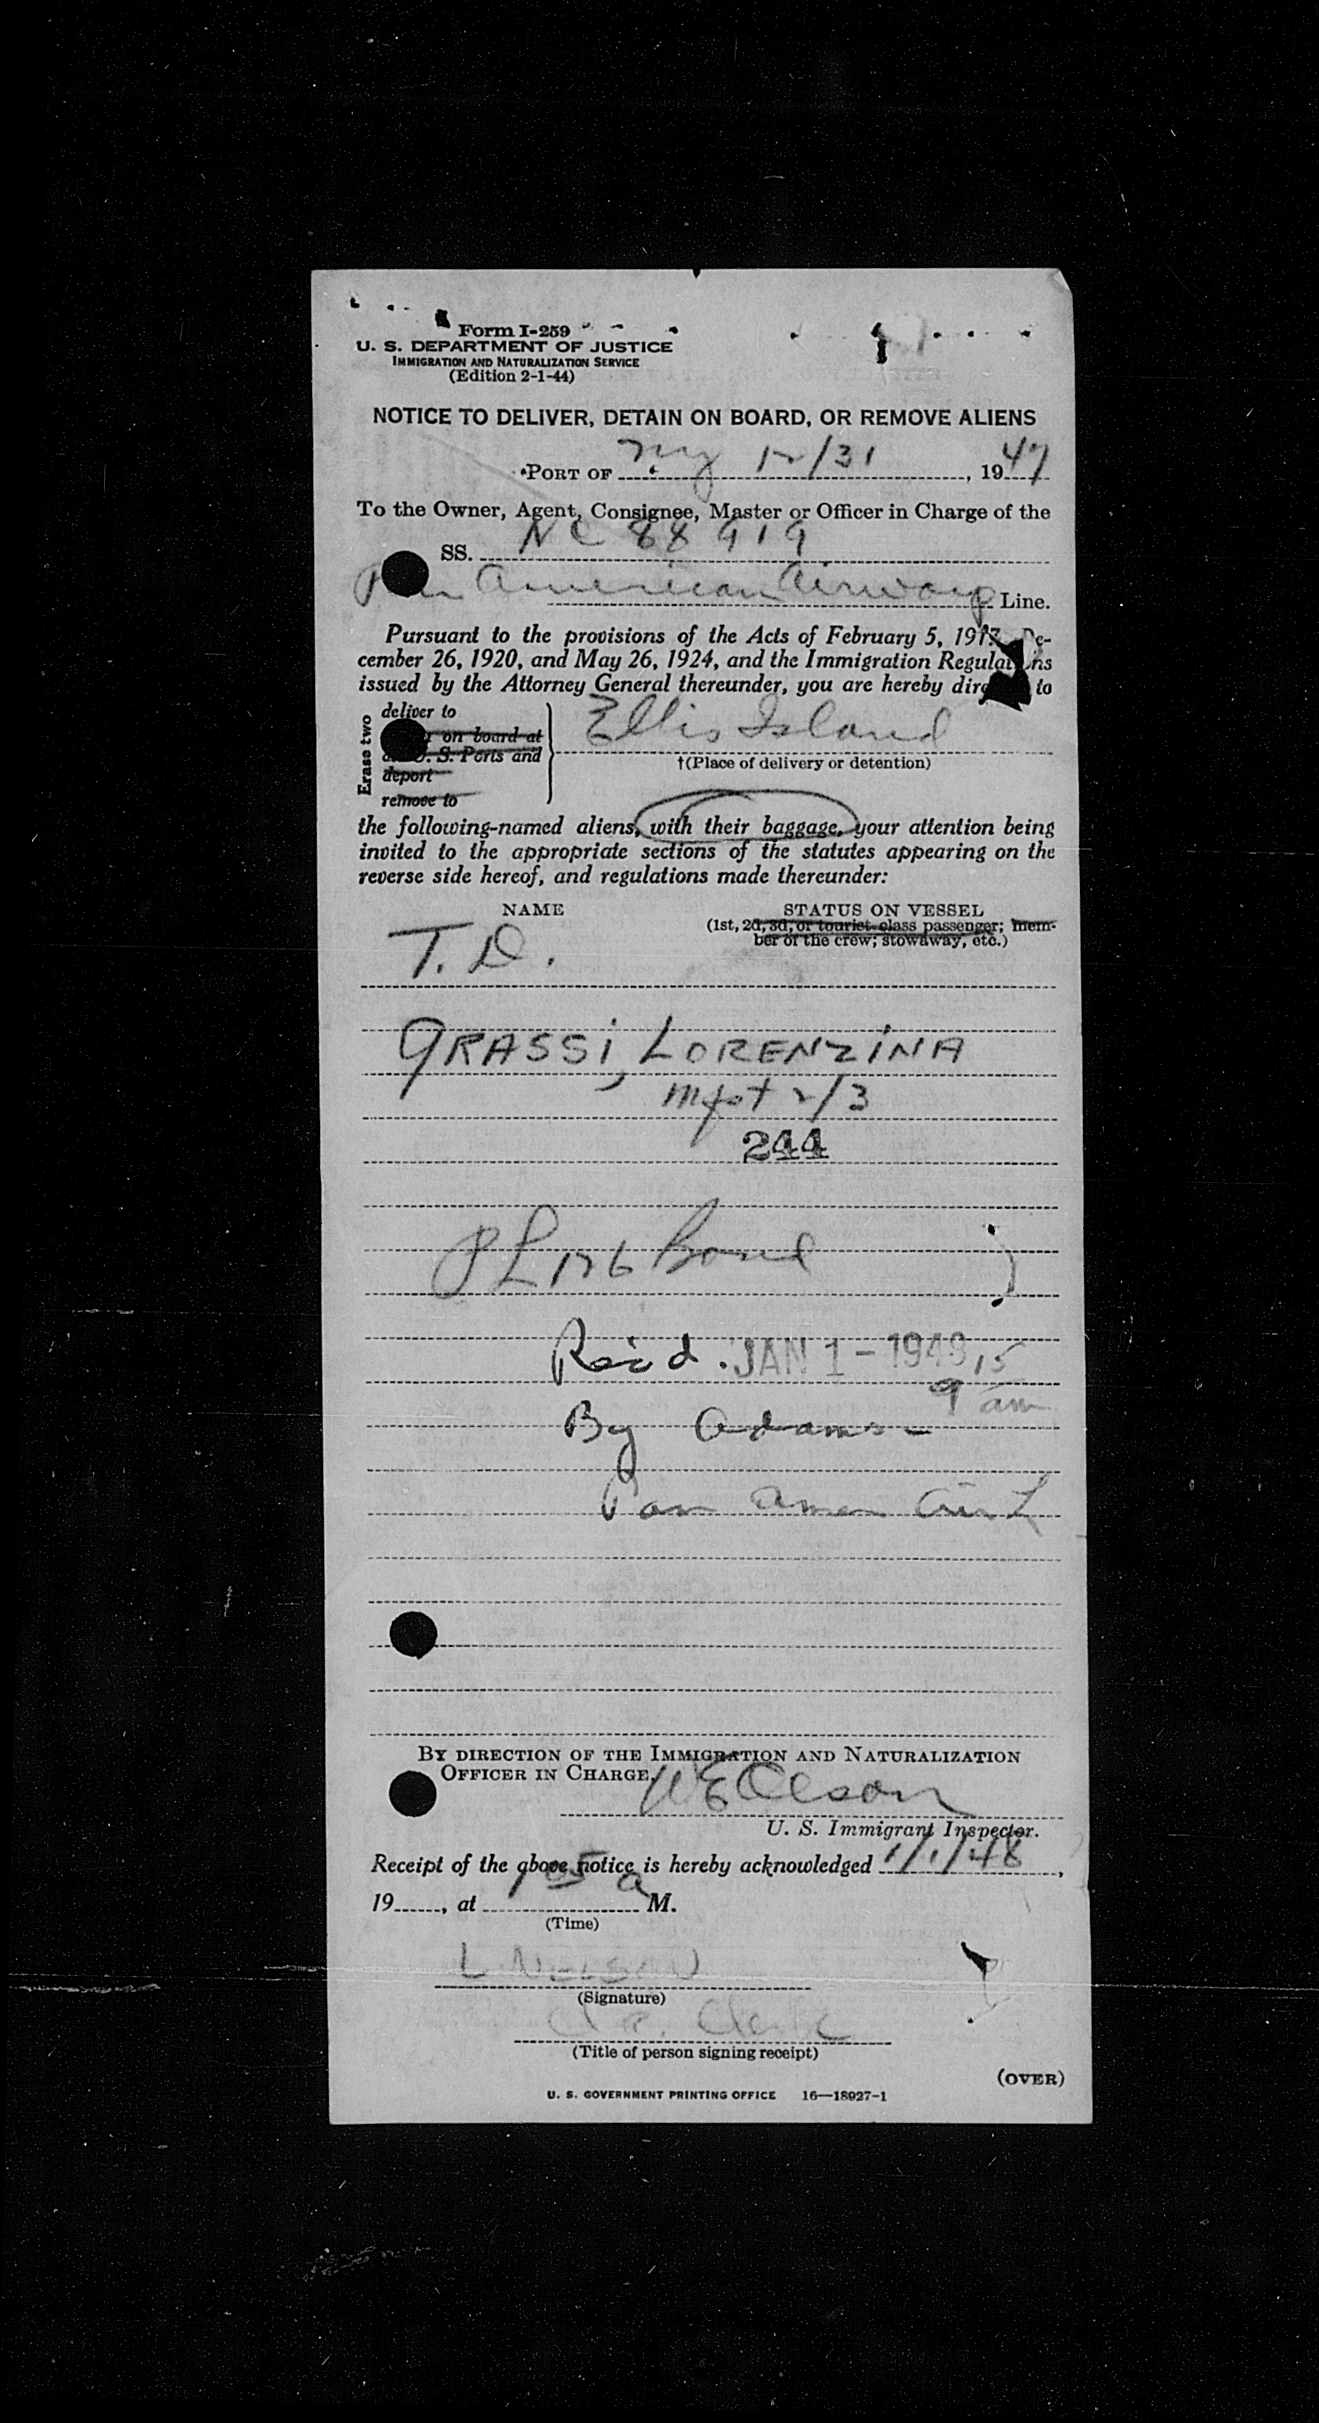 Form I-259
U. S. DEPARTMENT OF JUSTICE
IMMIGRATION AND NATURALIZATION SERVICE
(Edition 2-1-44)
NOTICE TO DELIVER, DETAIN ON BOARD, OR REMOVE ALIENS
PORT OF NY 12/31, 1947
To the Owner, Agent, Consignee, Master or Officer in Charge of the
SS. NC 88919
Pan American Airways Line.
Pursuant to the provisions of the Acts of February 5, 1917, De-
cember 26, 1920, and May 26, 1924, and the Immigration Regulations
issued by the Attorney General thereunder, you are hereby directed to
Erase two
deliver to
on board at
U. S. Ports and
deport
remove to
Ellis Island
†(Place of delivery or detention)
the following-named aliens, with their baggage, your attention being
invited to the appropriate sections of the statutes appearing on the
reverse side hereof, and regulations made thereunder:
NAME STATUS ON VESSEL
(1st, 2d, 3d, or tourist-class passenger; mem-
ber of the crew; stowaway, etc.)
T. D.
GRASSI, LORENZINA
2/3
244
PL 126 Bond
Rec'd. JAN 1 - 1948 15
9 am
By Adams -
Pan Amer Air L
BY DIRECTION OF THE IMMIGRATION AND NATURALIZATION
OFFICER IN CHARGE.
WE Olson
U. S. Immigrant Inspector.
Receipt of the above notice is hereby acknowledged 1/1/48,
19, at 1 05 a M.
(Time)
L NELSON
(Signature)
Clerk
(Title of person signing receipt)
(OVER)
U. S. GOVERNMENT PRINTING OFFICE 16—18927-1